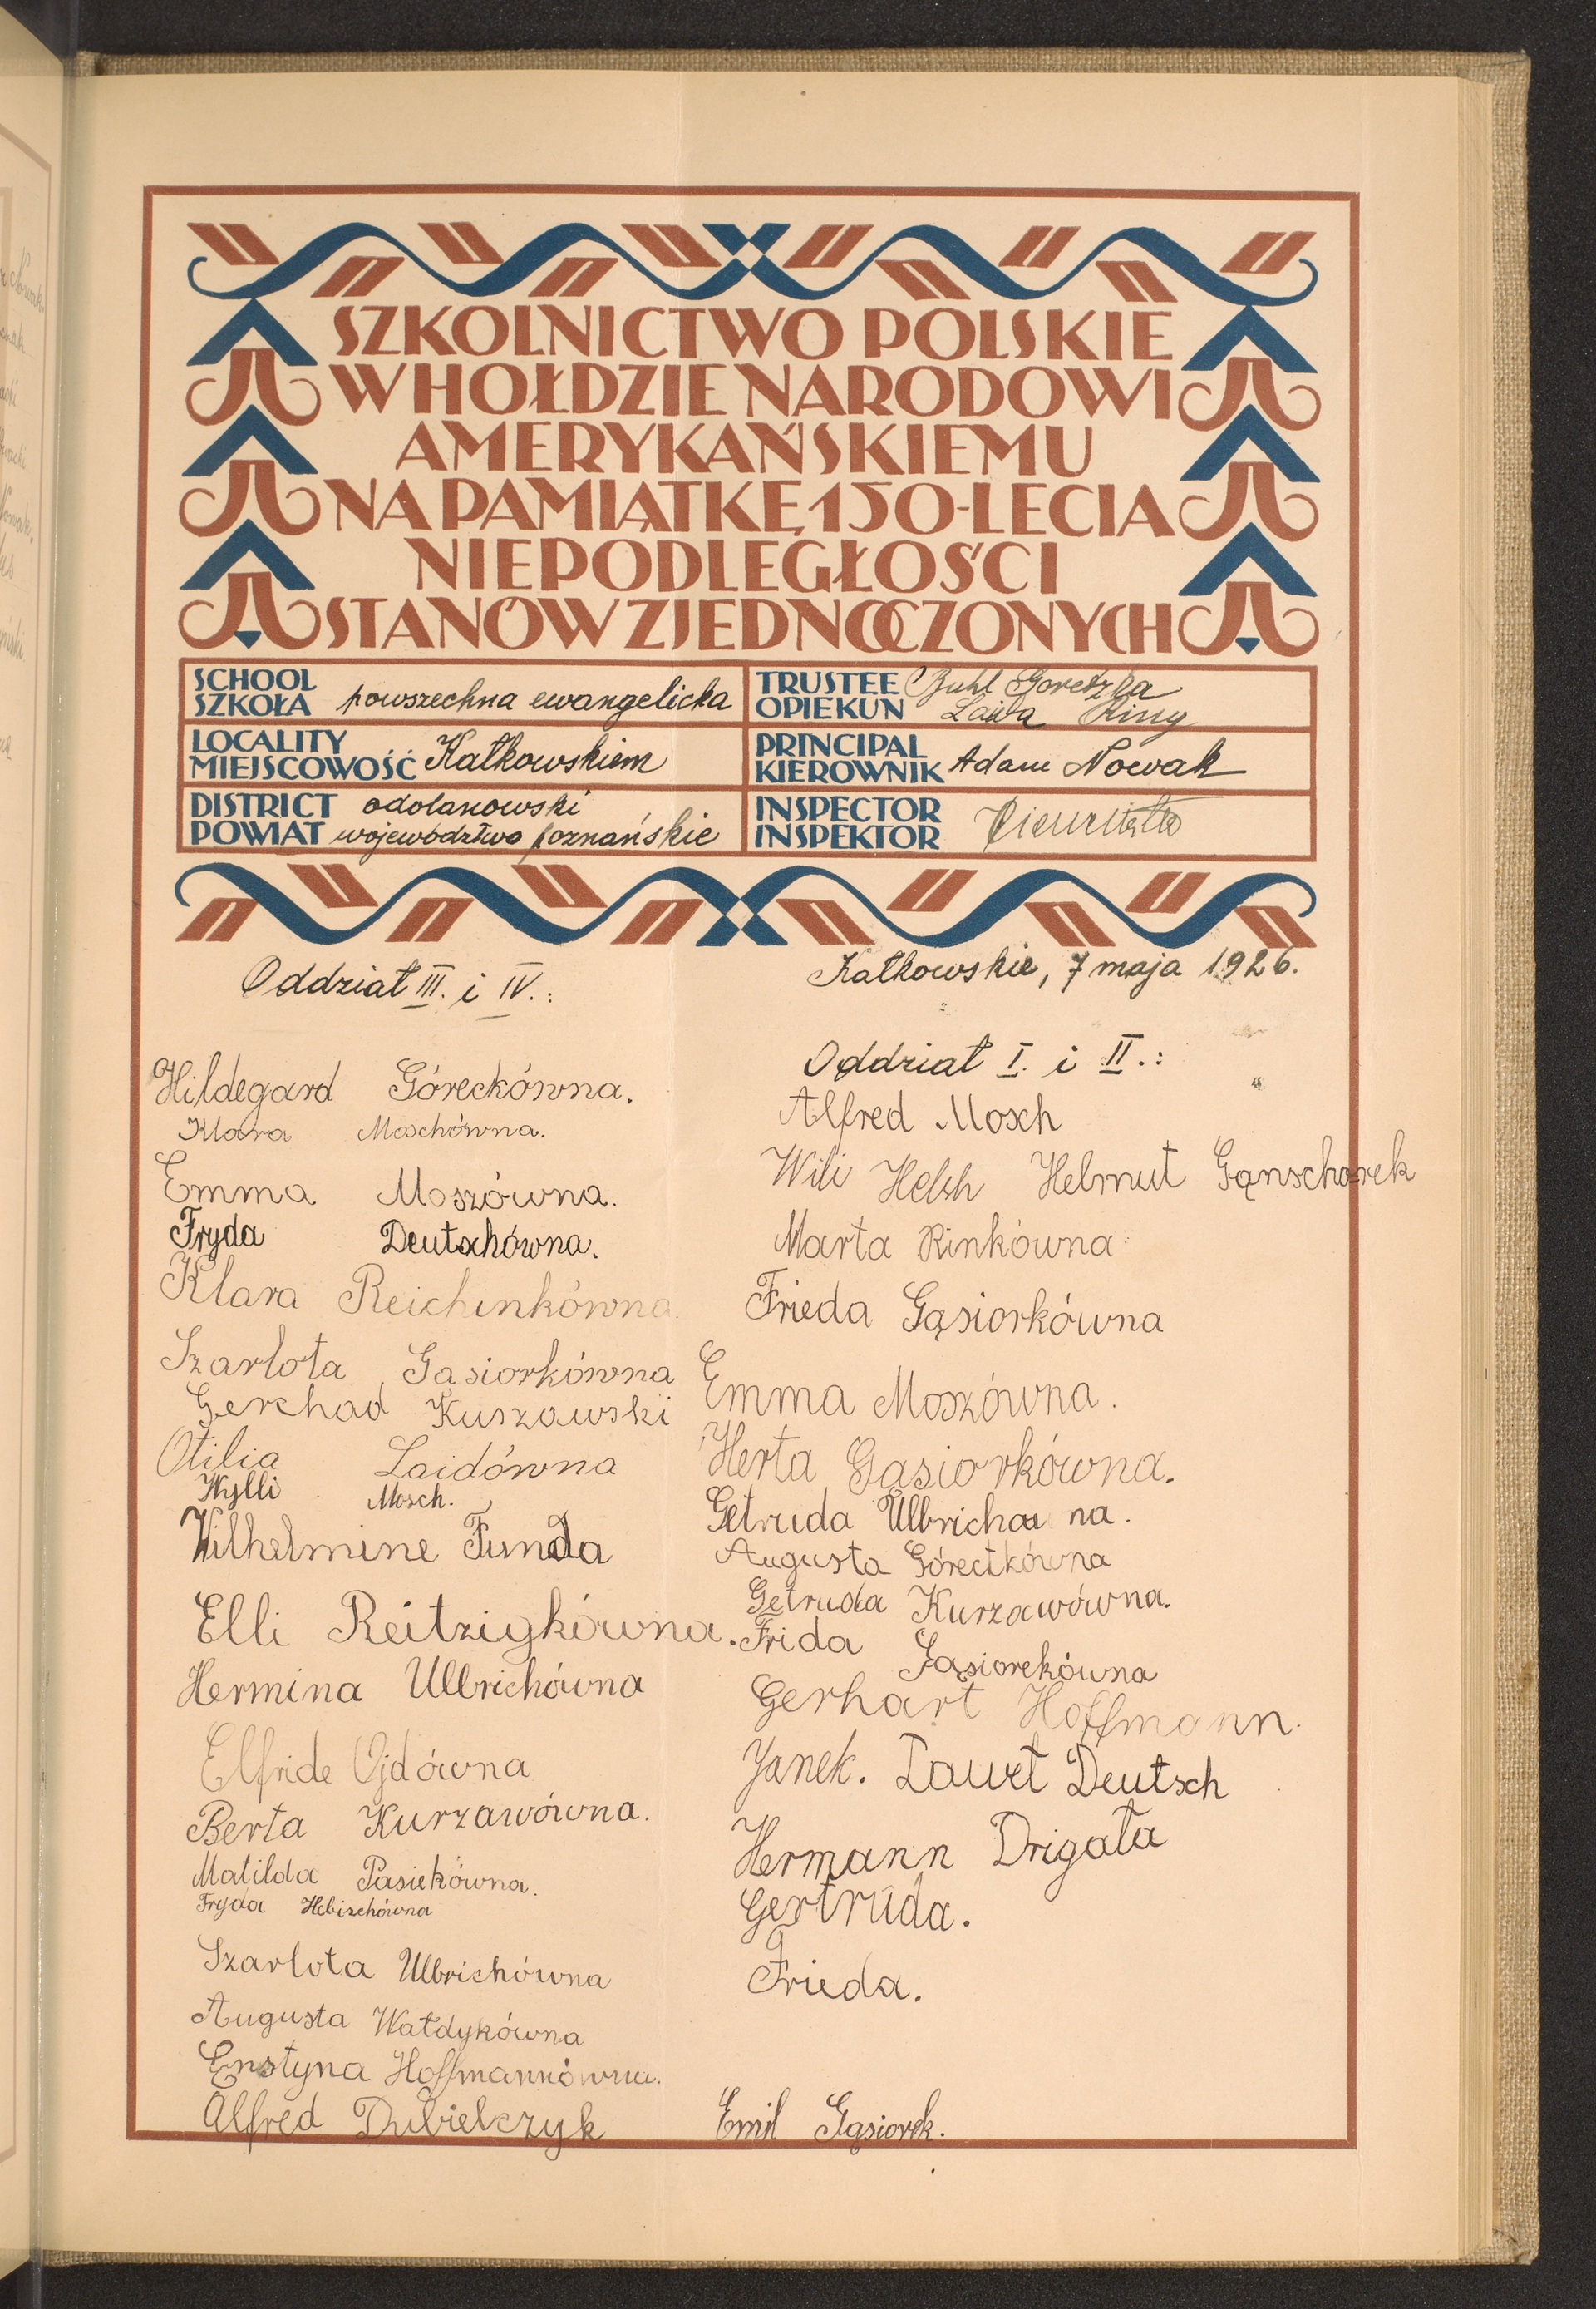 SZKOLNICTWO POLSKIE
W HOŁDZIE NARODOWI
AMERYKAŃSKIEMU
NA PAMIĄTKĘ 150-LECIA
NIEPODLEGŁOŚCI
STANÓW ZJEDNOCZONYCH
SCHOOL
SZKOŁA powszechna ewangelicka
TRUSTEE Buhl Goretzka
OPIEKUN Laida
LOCALITY
MIEJSCOWOŚĆ Kałkowskiem
PRINCIPAL
KIEROWNIK Adam Nowak
DISTRICT odolanowski
POWIAT województwo poznańskie
INSPECTOR
INSPEKTOR
Kałkowskie, 7 maja 1926.
Oddział III. i IV.:
Hildegard Góreckówna.
Klara Moschówna.
Emma Moszówna.
Fryda Deutschówna.
Klara Reichinkówna
Szarlota Gąsiorkówna
Gerchad Kurzawski
Otilia Laidówna
Wylli Mosch.
Wilhelmine Funda
Elli Reitzigkówna.
Hermina Ulbrichówna
Elfride Ojdówna
Berta Kurzawówna.
Matilda Pasiekówna.
Fryda Hebischówna
Szarlota Ulbrichówna
Augusta Wałdykówna
Enstyna Hoffmannówna.
Alfred Dubielczyk
Oddział I. i II.:
Alfred Mosch
Wili Helsh Helmut Gąnschorek
Marta Rinkówna
Frieda Gąsiorkówna
Emma Moszówna.
Herta Gąsiorkówna.
Getruda Ulbrichow na.
Augusta Górectkówna
Getruda Kurzawówna.
Frida Gąsiorekówna
Gerhart Hoffmann.
Janek. Deutsch
Hermann Drigała
Gertruda.
Frieda.
Emil Gąsiorek.